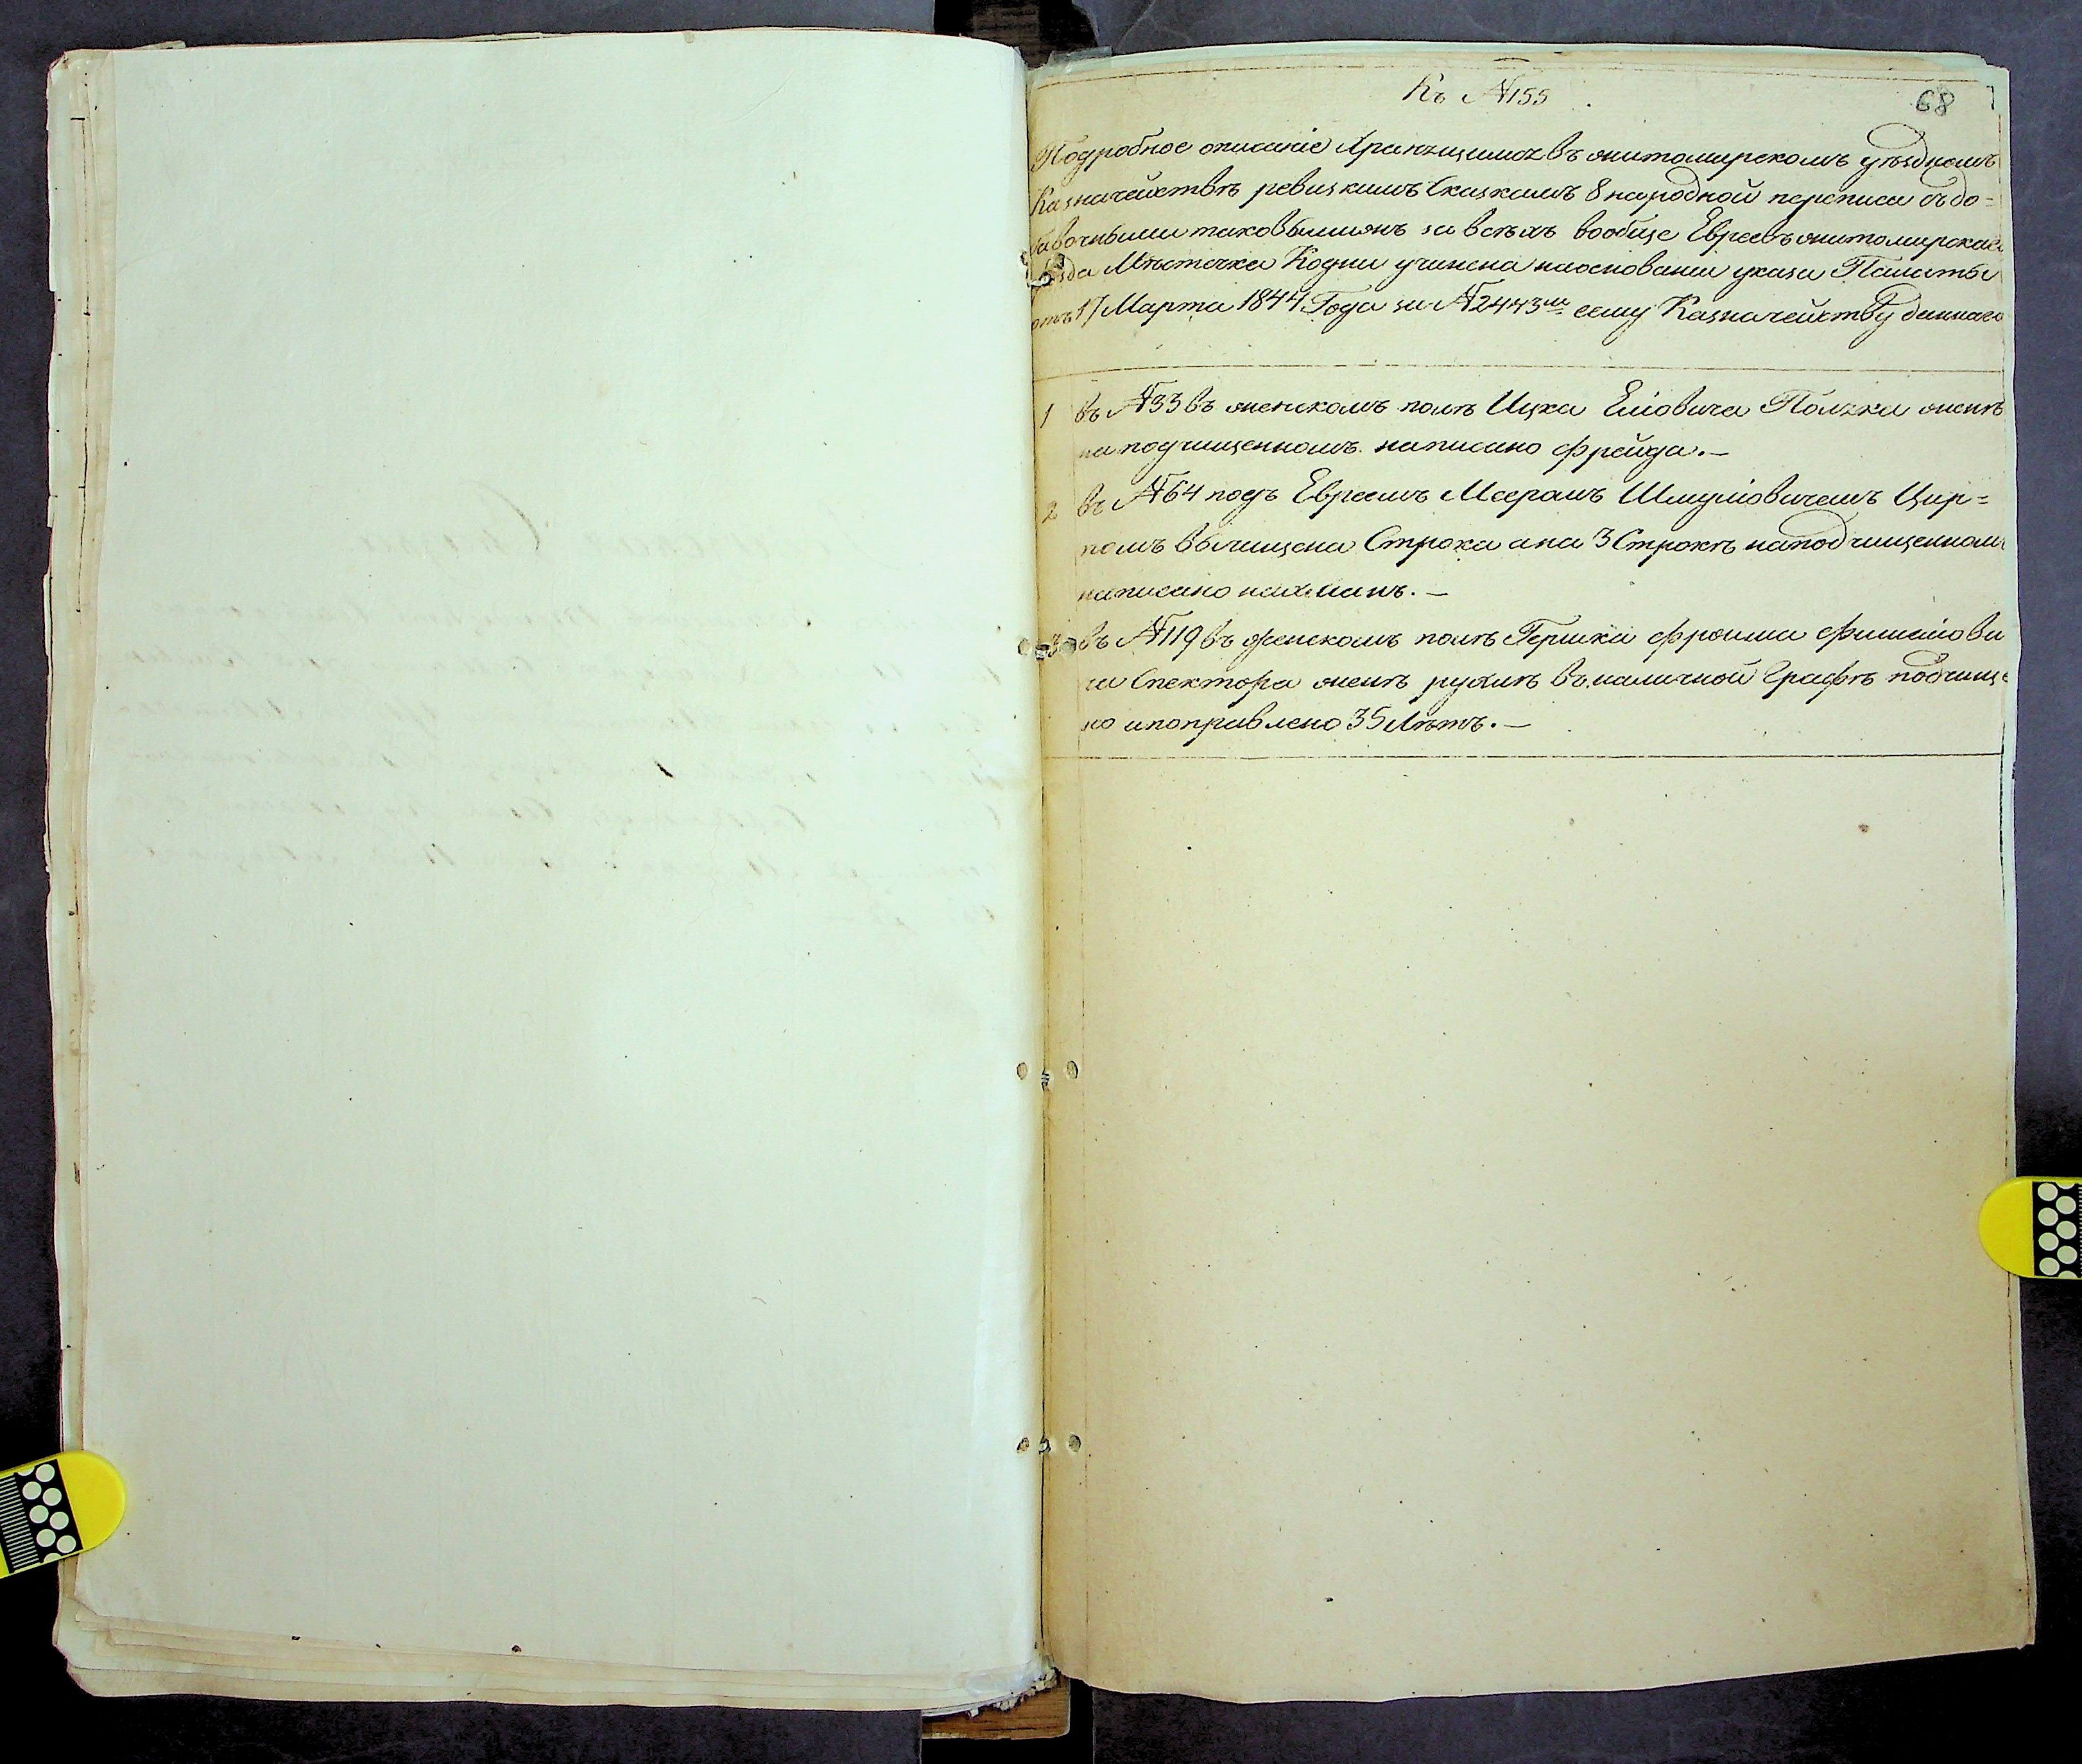 Къ №155
68
Подробное описаніе хранящимся въ житомирскомъ уѣздномъ
Казначействѣ ревизкимъ Сказкамъ 8 народной переписи съ до=
бавочными таковыми за всѣхъ вообще Евреевъ житомирскаго
уѣзда Мѣстечка Кодни учинена наосновании указа Палаты
отъ 17 Марта 1844 Года за №2443мъ сему Казначейству даннаго
1 въ №33 въ женскомъ полѣ Ицка Еліовича Поляка женѣ
на подчищенномъ написано фрейда.—
2 въ №64 подъ Евреемъ Мееромъ Шмуліовичемъ Цир=
помъ вычищена Строка ана 3 Строкѣ наподчищенномъ
написано нахманъ.—
3 въ №119 въ женскомъ полѣ Гершки фроима фишеліови
ча Спектора женѣ рухлѣ въ наличной Графѣ подчище
но ипоправлено 35 Лѣтъ.—